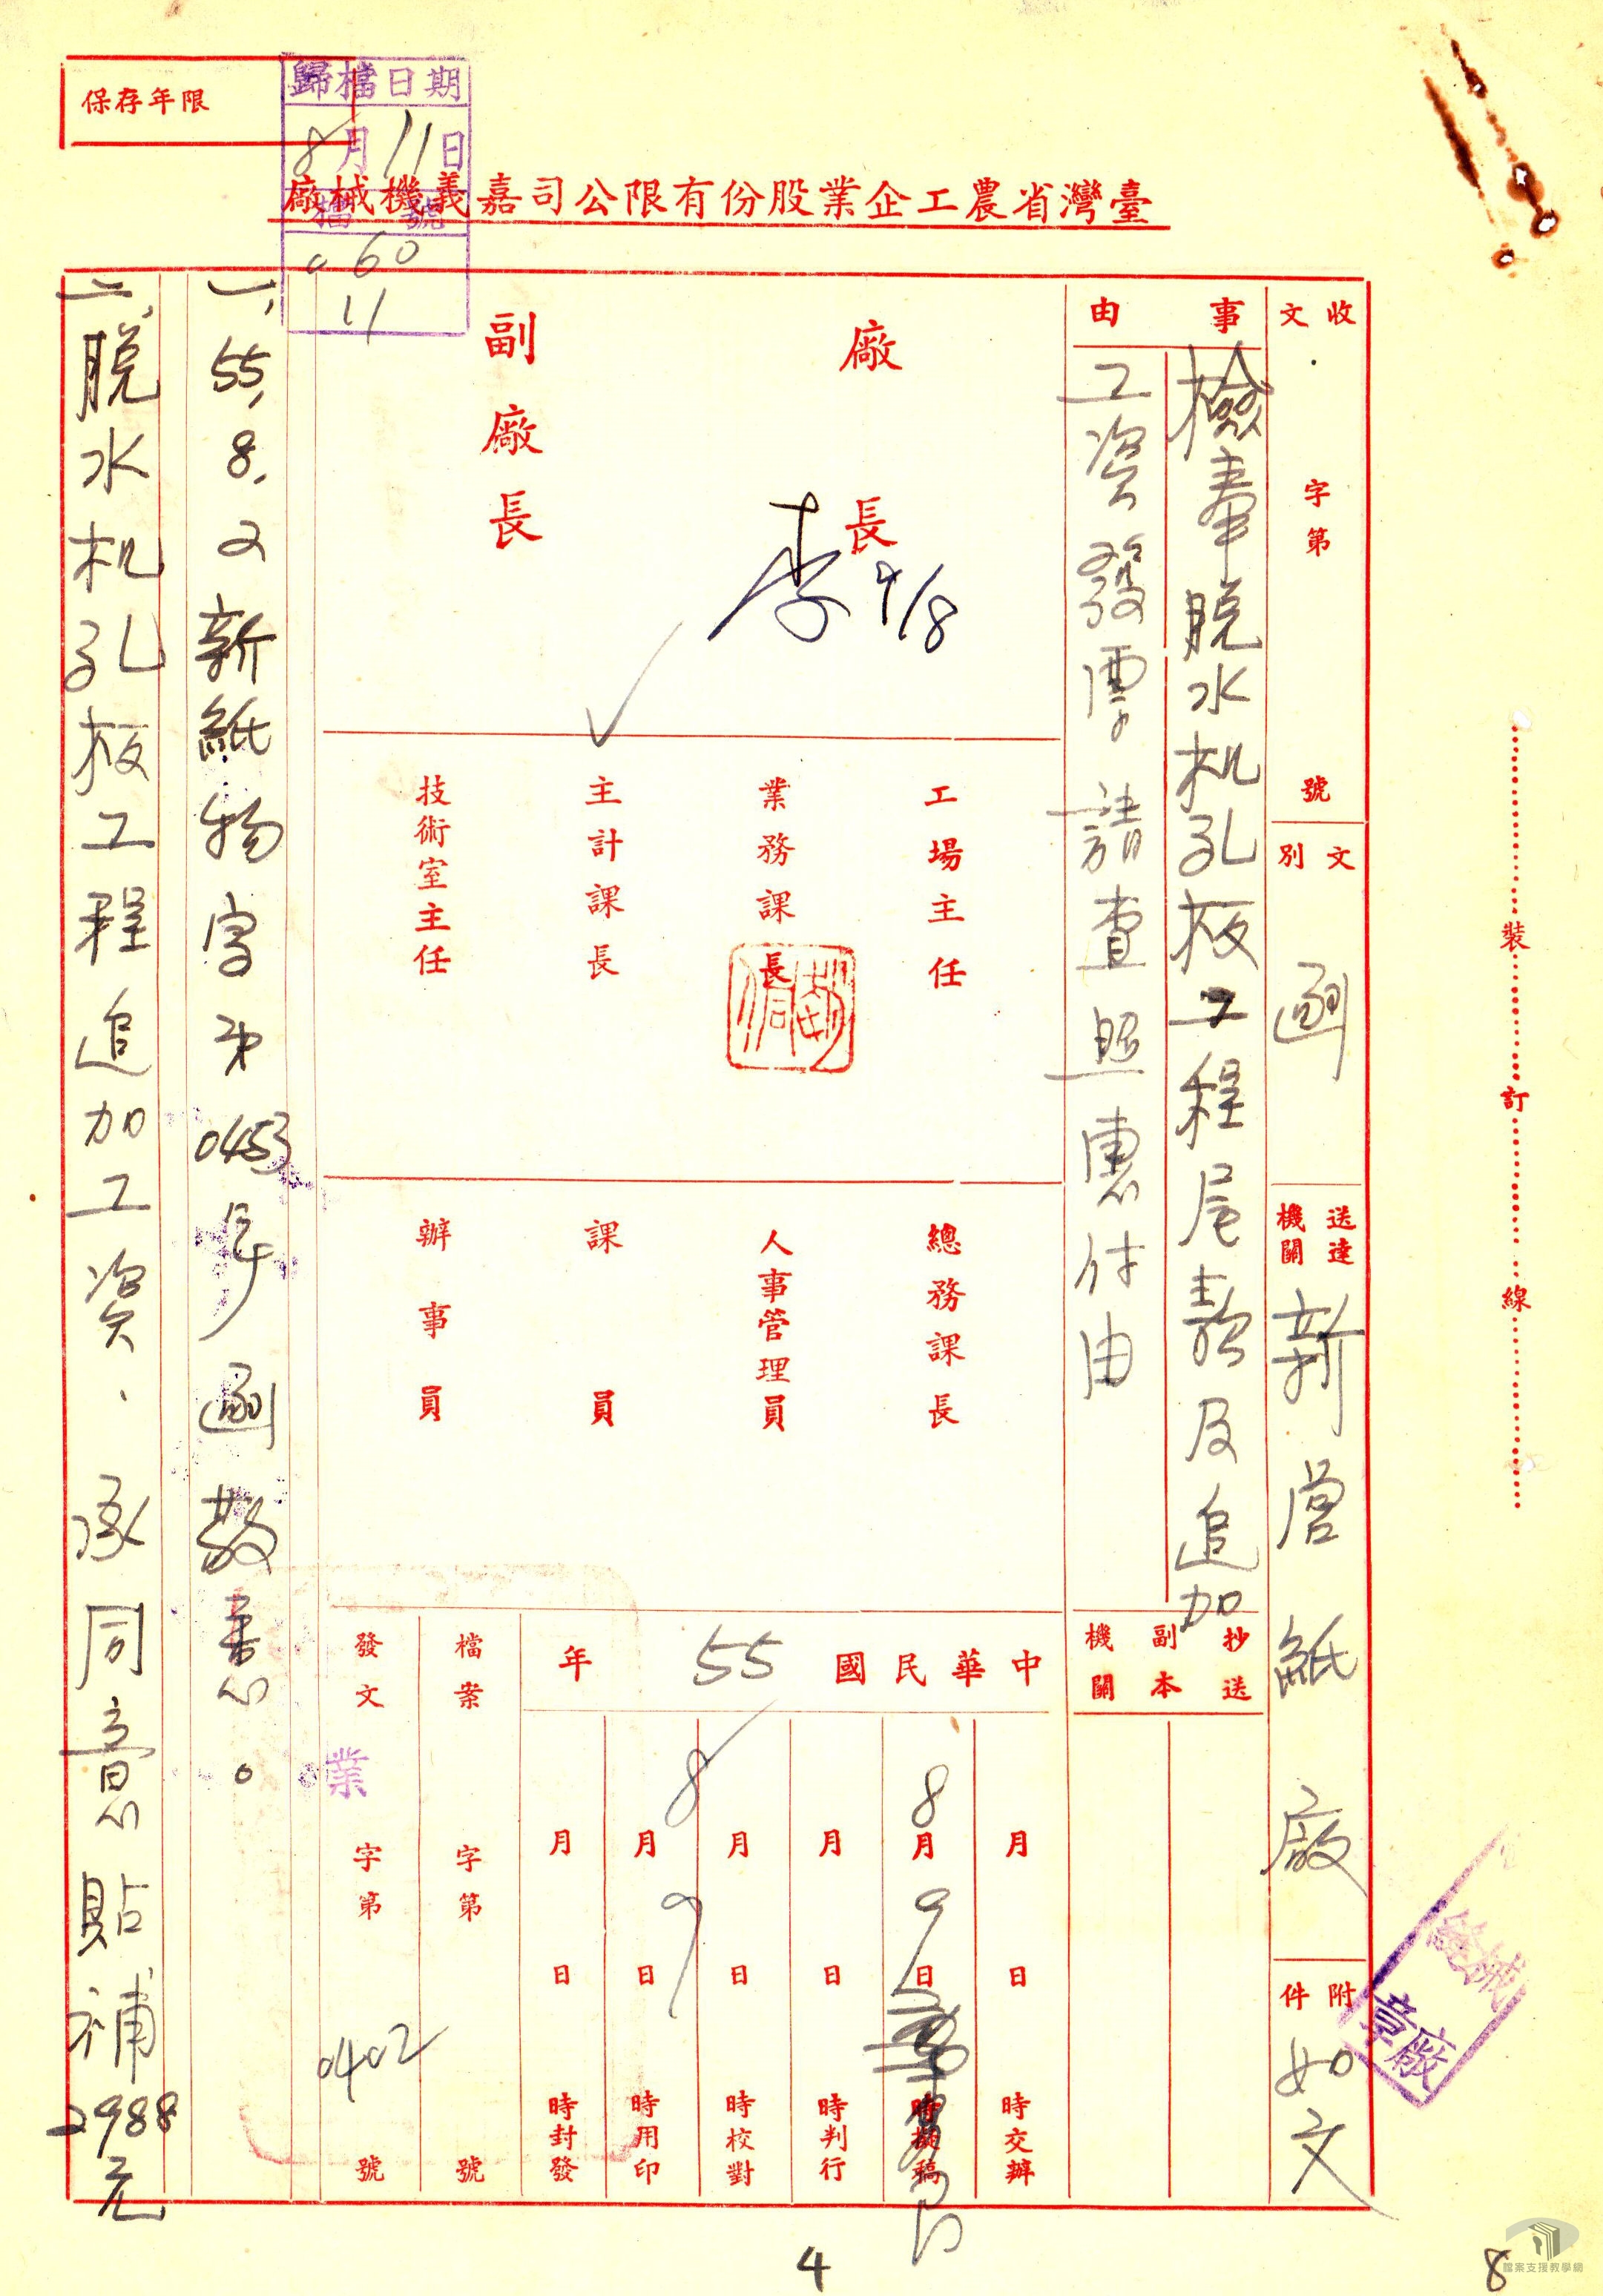 保存年限
歸檔日期
8月11日
檔號
060
11
臺灣省農工企業股份有限公司嘉義機械廠
收文 字第 號
文別 函
送達機關 新營紙廠
附件 如文
事由
檢奉脫水机孔板工程尾款及追加
工資發票請查照惠付由
抄送副本機關
廠長
李 9/8
副廠長
工場主任
業務課長
主計課長
技術室主任
總務課長
人事管理員
課員
辦事員
中華民國55年
月 日 時交辦
8月9日 時擬稿
月 日 時判行
月 日 時校對
8月9日 時用印
月 日 時封發
檔案 字第 號
發文 業字第 0402 號
一、55.8.2新紙物字第0453号函敬悉。
二、脫水机孔板工程追加工資.承同意貼補2988元
裝 訂 線
章廠
4
8
檔案支援教學網